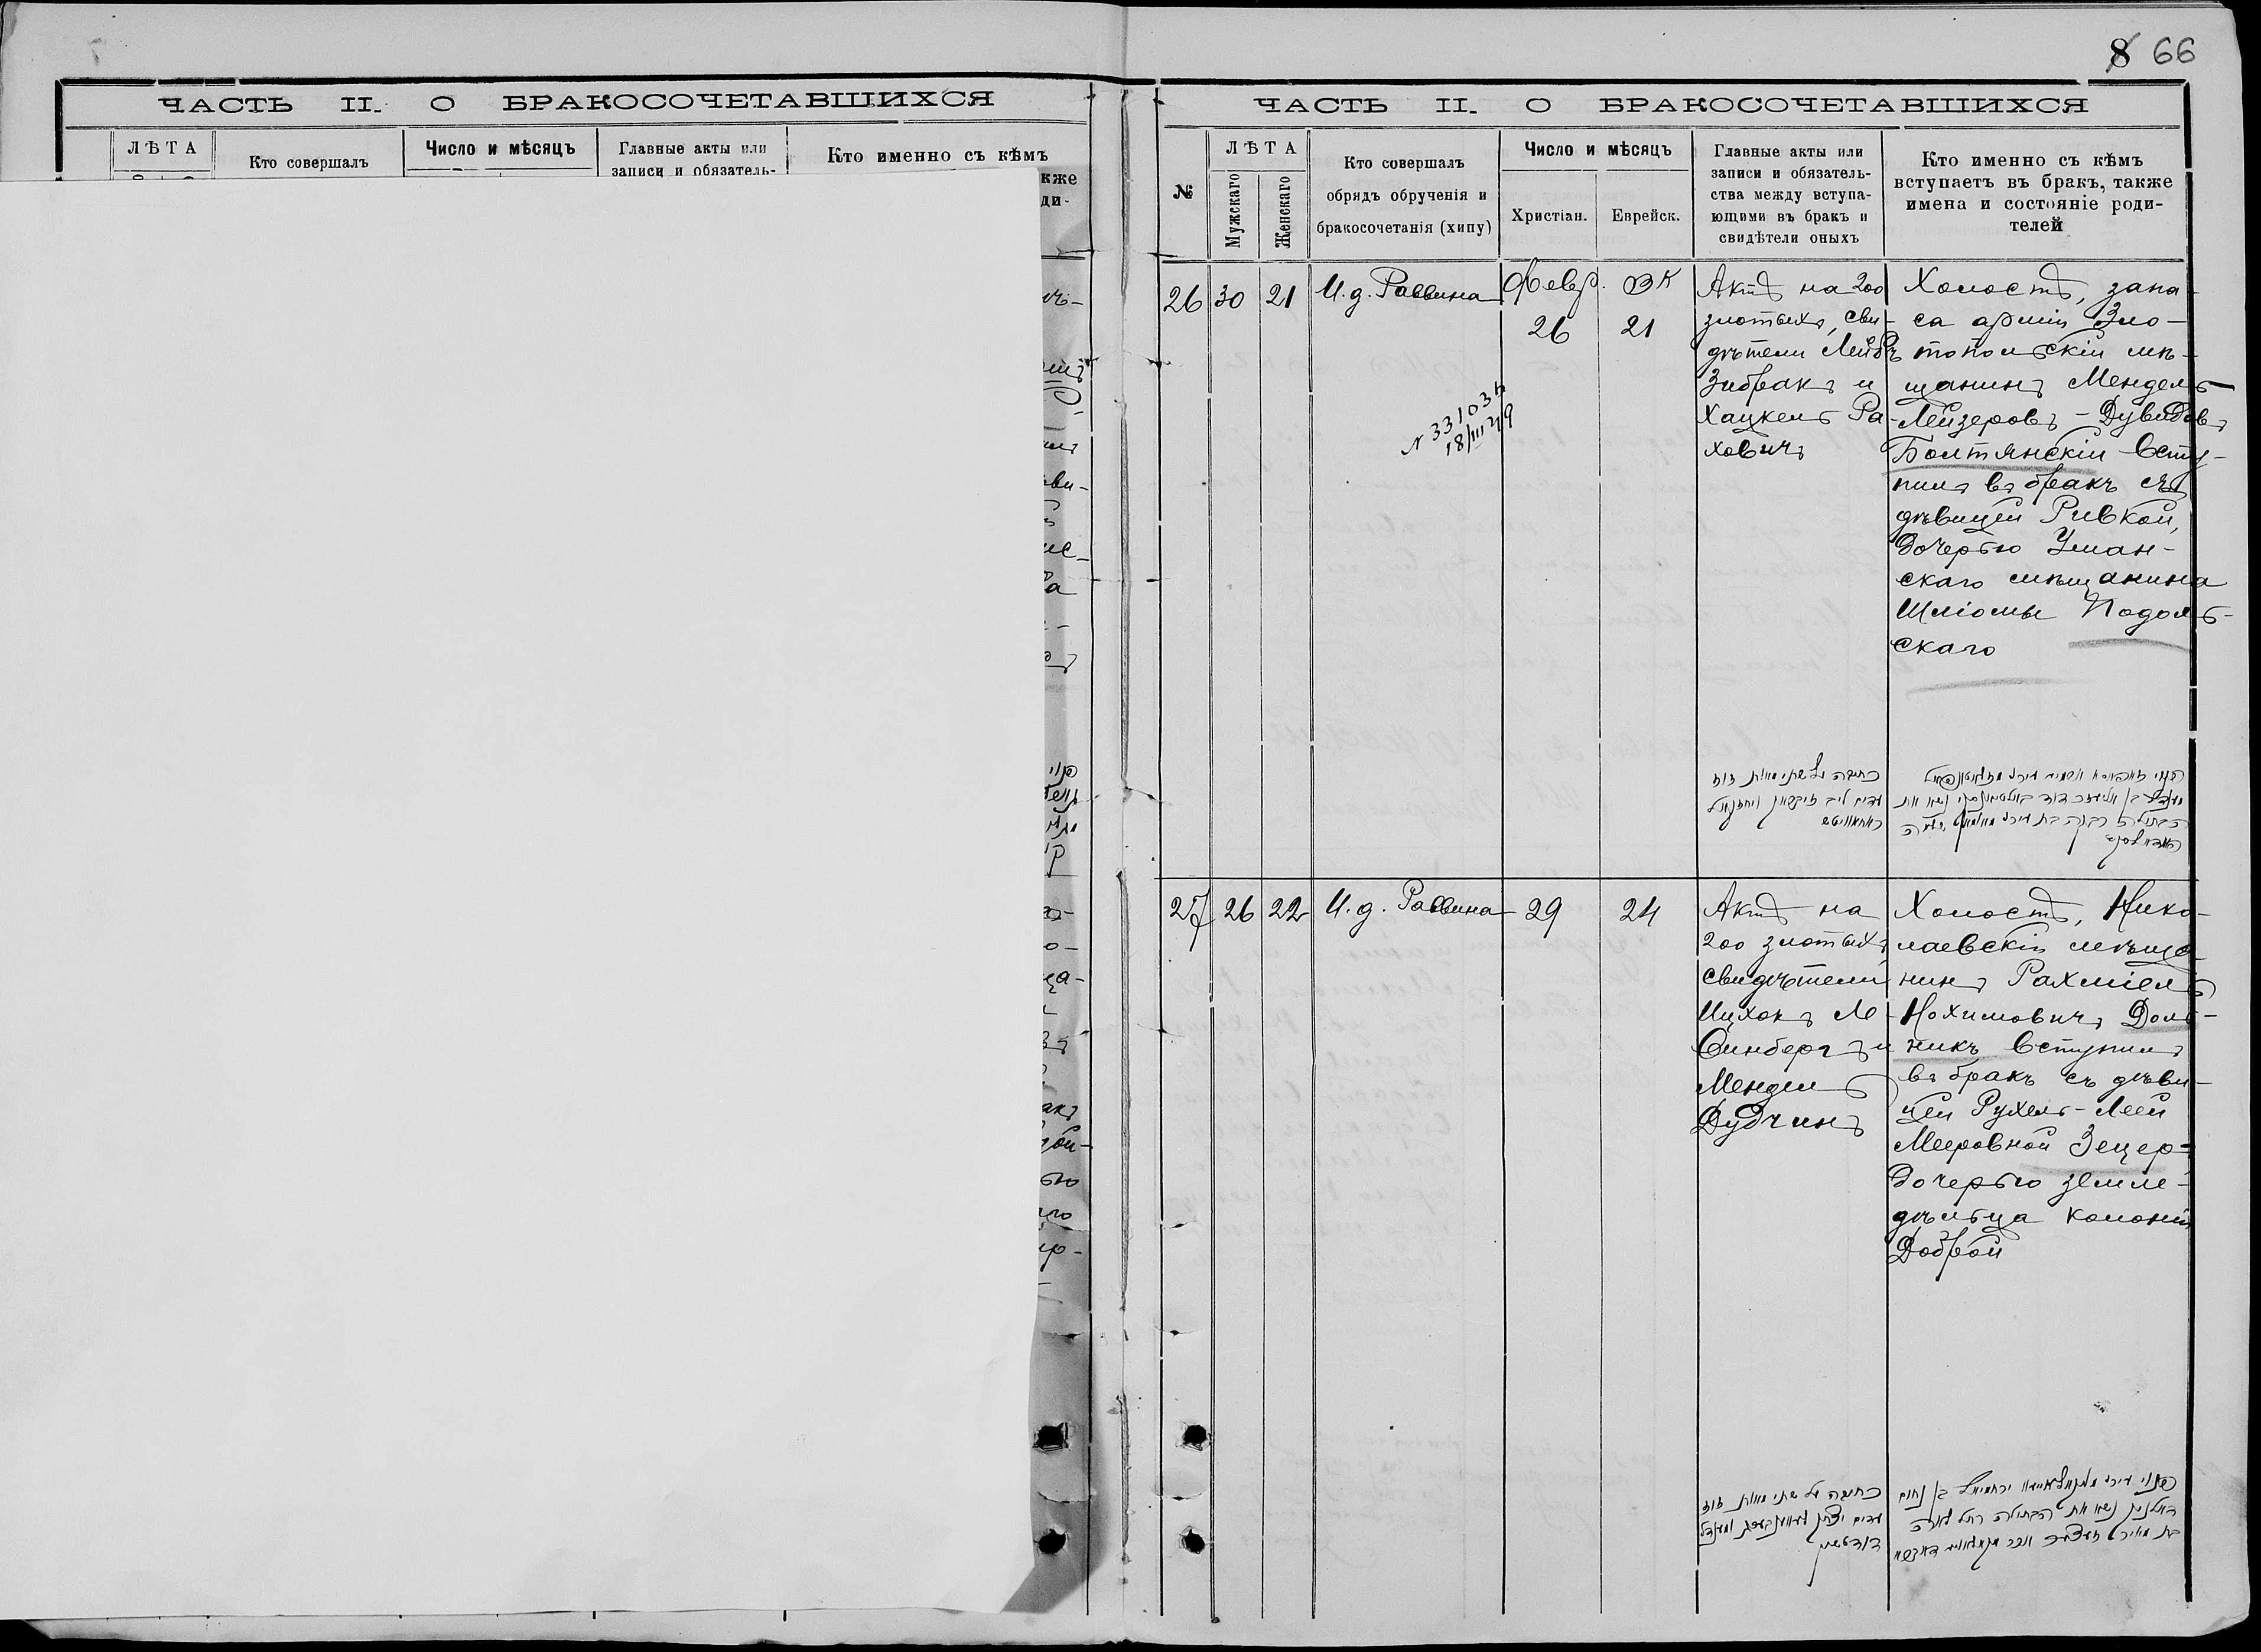 8 66
ЧАСТЬ II. О БРАКОСОЧЕТАВШИХСЯ
ЛѢТА
Кто совершалъ
Число и мѣсяцъ
Главные акты или
записи и обязатель-
Кто именно съ кѣмъ
ЧАСТЬ II. О БРАКОСОЧЕТАВШИХСЯ
№
ЛѢТА
Мужскаго
Женскаго
Кто совершалъ
обрядъ обрученія и
бракосочетанія (хипу)
Число и мѣсяцъ
Христіан.
Еврейск.
Главные акты или
записи и обязатель-
ства между вступа-
ющими въ бракъ и
свидѣтели оныхъ
Кто именно съ кѣмъ
вступаетъ въ бракъ, также
имена и состояніе роди-
телей
26
30
21
И. д. Раввина
Февр.
26
21
N 33103
18/III 49
Актъ на 200
злотыхъ, сви-
дѣтели Лейбъ
Зибракъ и
Хацкель Ра-
ховичъ
Холостъ, запа-
са арміи Зло-
топольскій мѣ-
щанинъ Мендель
Лейзеровъ-Дувидовъ
Болтянскій всту-
пилъ въ бракъ съ
дѣвицей Ривкой,
дочерью Уман-
скаго мѣщанина
Шліомы Подоль-
скаго
כתובה על שתי מאות זוז
27
26
22
И. д. Раввина
29
24
Актъ на
200 злотыхъ
свидѣтели
Ицхокъ Ле-
винбергъ и
Мендель
Дудчинъ
Холостъ, Нико-
лаевскій мѣща-
нинъ Рахміель
Нохимовичъ Доль-
никъ вступилъ
въ бракъ съ дѣви-
цей Рухель-Леей
Мееровной Зецер-
дочерью земле-
дѣльца колоніи
Доброй
כתובה על שתי מאות זוז